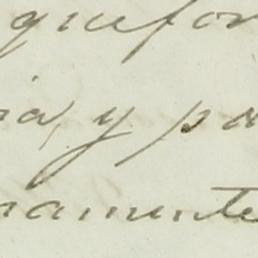 que for
ia, y pa
ramente